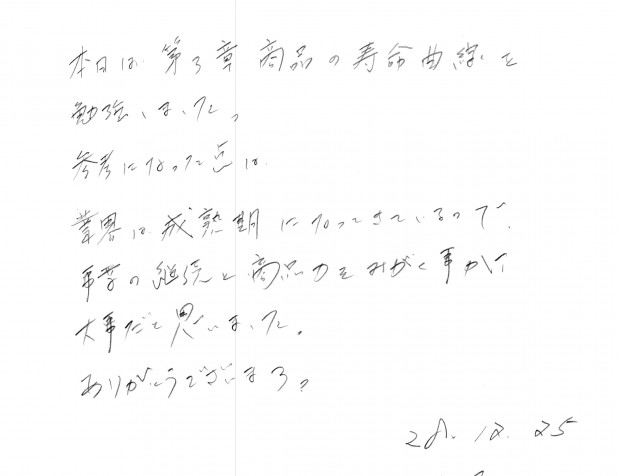 本日は第3章商品の寿命曲線を
勉強いました。
参考になった点は、
業界は成熟期になってきているので、
事業の継続と商品力をみがく事が
大事だと思いました。
ありがとうございます。
28.12.25